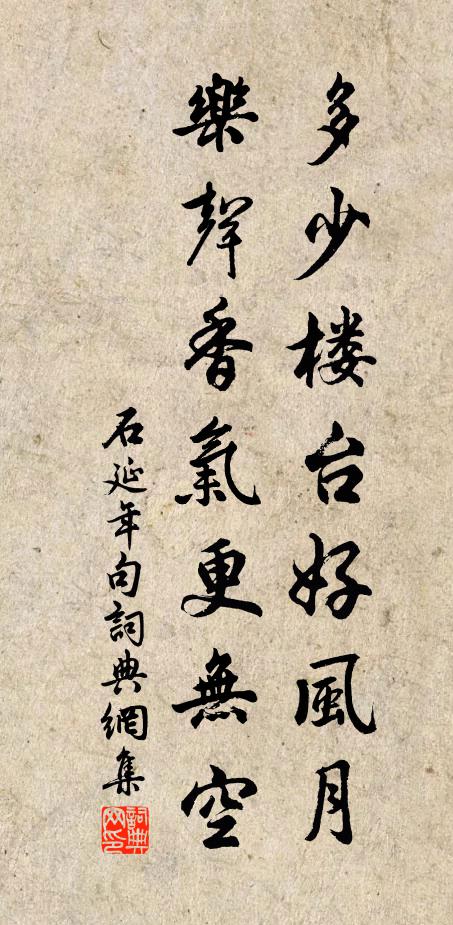 多少楼台好風月
樂聲香氣更無空
石延年句詞典網集
詞典网印